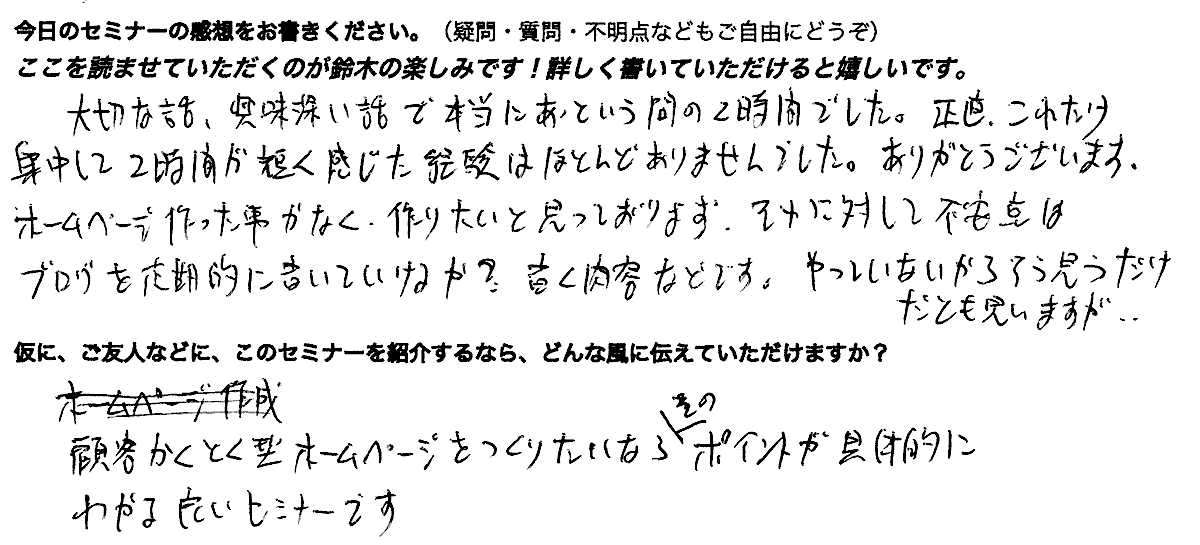 今日のセミナーの感想をお書きください。（疑問・質問・不明点などもご自由にどうぞ）
ここを読ませていただくのが鈴木の楽しみです！詳しく書いていただけると嬉しいです。
大切な話、興味深い話で本当にあっという間の2時間でした。正直、これだけ
集中して2時間が短く感じた経験はほとんどありませんでした。ありがとうございます。
ホームページ作った事がなく、作りたいと思っております。それに対して不安点は
ブログを定期的に書いていけるか？書く内容などです。やっていないからそう思うだけ
だとも思いますが..
仮に、ご友人などに、このセミナーを紹介するなら、どんな風に伝えていただけますか？
ホームページ作成
顧客かくとく型ホームページをつくりたいならそのポイントが具体的に
わかる良いセミナーです